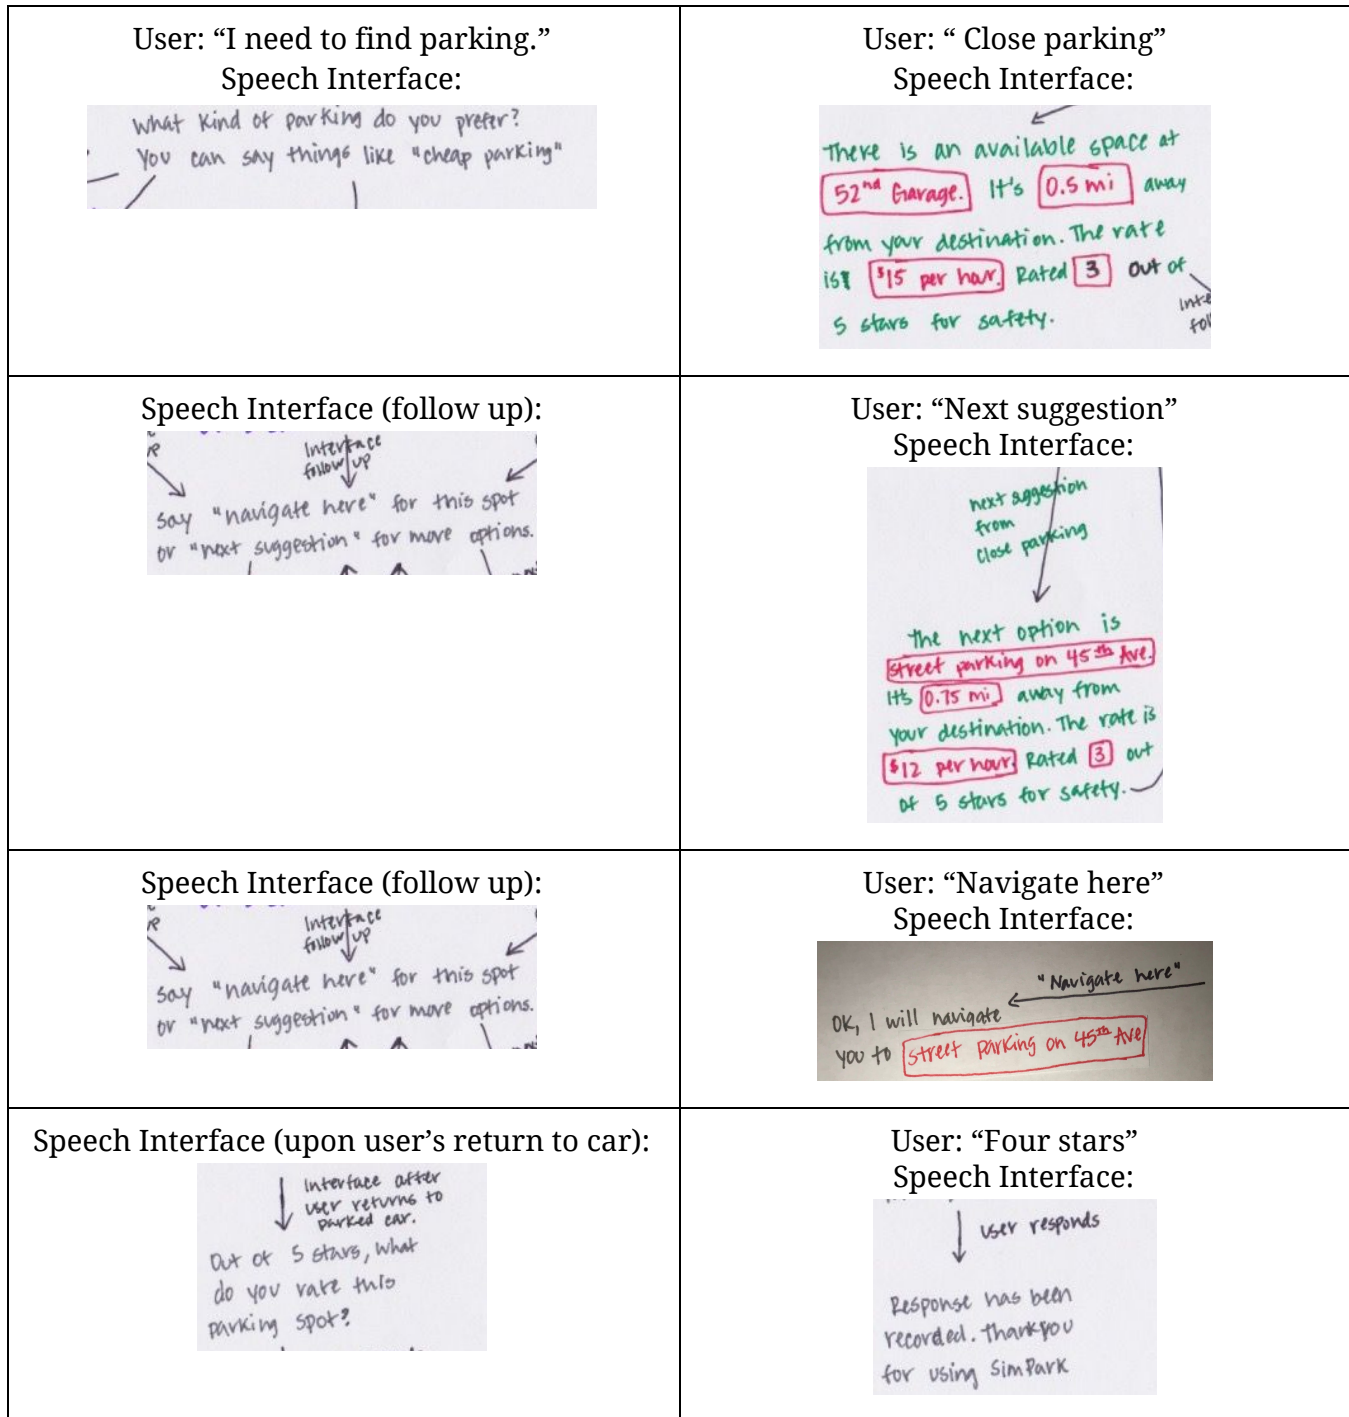 User: “I need to find parking.”
Speech Interface:
What kind of parking do you prefer?
You can say things like "cheap parking"
User: “ Close parking”
Speech Interface:
There is an available space at
52nd Garage. It's 0.5 mi away
from your destination. The rate
is $15 per hour. Rated 3 out of
5 stars for safety.
Speech Interface (follow up):
Interface
follow up
Say "navigate here" for this spot
or "next suggestion" for more options.
User: “Next suggestion”
Speech Interface:
next suggestion
from
close parking
The next option is
street parking on 45th Ave.
It's 0.75 mi away from
your destination. The rate is
$12 per hour. Rated 3 out
of 5 stars for safety.
Speech Interface (follow up):
Interface
follow up
Say "navigate here" for this spot
or "next suggestion" for more options.
User: “Navigate here”
Speech Interface:
"Navigate here"
OK, I will navigate
you to street parking on 45th Ave
Speech Interface (upon user’s return to car):
Interface after
user returns to
parked car.
Out of 5 stars, what
do you rate this
parking spot?
User: “Four stars”
Speech Interface:
user responds
Response has been
recorded. Thankyou
for using SimPark